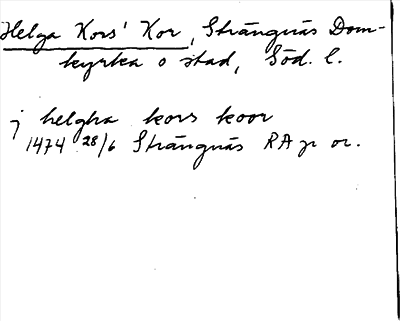 Helga Kors' Kor, Strängnäs Dom-
kyrka o stad, Söd. l.
j helgha kors koor
1474 28/6 Strängnäs RA p or.